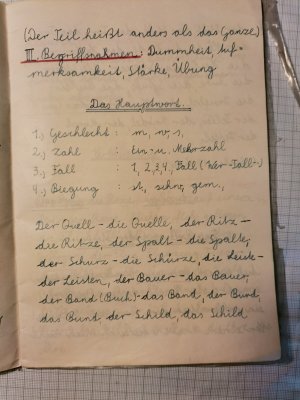 (Der Teil heißt anders als das Ganze)
III. Begriffsnahmen: Dummheit, Auf-
merksamkeit, Stärke, Übung
Das Hauptwort.
1.) Geschlecht : m, w, s,
2.) Zahl : Ein- u. Mehrzahl
3.) Fall : 1, 2, 3, 4, Fall (Wer-Fall-)
4.) Biegung : st, schw, gem.,
Der Quell - die Quelle, der Ritz -
die Ritze, der Spalt - die Spalte,
der Schurz - die Schürze, die Leiste -
der Leisten, der Bauer - das Bauer,
der Band (Buch) - das Band, der Bund,
das Bund der Schild, das Schild